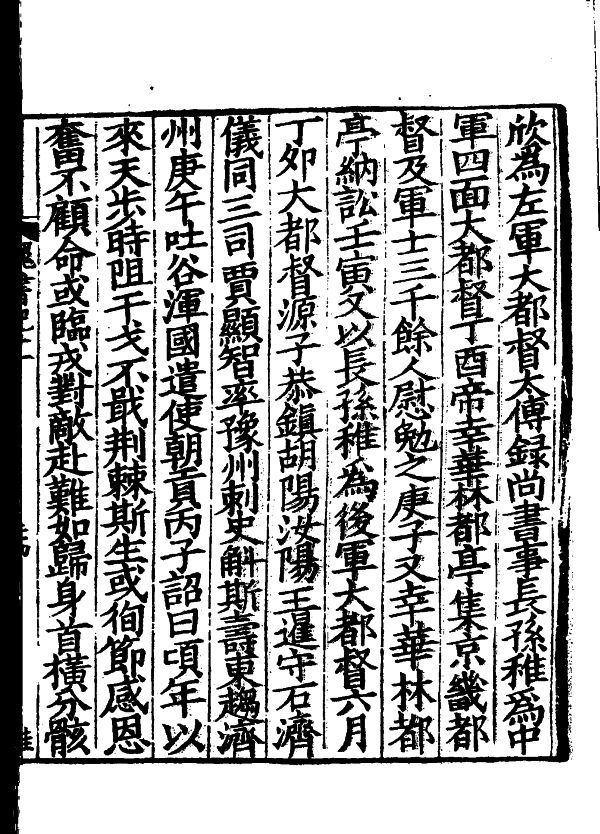 欣為左軍大都督太傅録尚書事長孫稚為中
軍四面大都督丁酉帝幸華林都亭集京畿都
督及軍士三千餘人慰勉之庚子又幸華林都
亭納訟壬寅又以長孫稚為後軍大都督六月
丁夘大都督源子恭鎮胡陽汝陽王暹守石濟
儀同三司賈顯智率豫州刺史斛斯壽東趨濟
州庚午吐谷渾國遣使朝貢丙子詔曰頃年以
來天步時阻干戈不戢荆棘斯生或徇節感恩
奮不顧命或臨戎對敵赴難如歸身首橫分骸